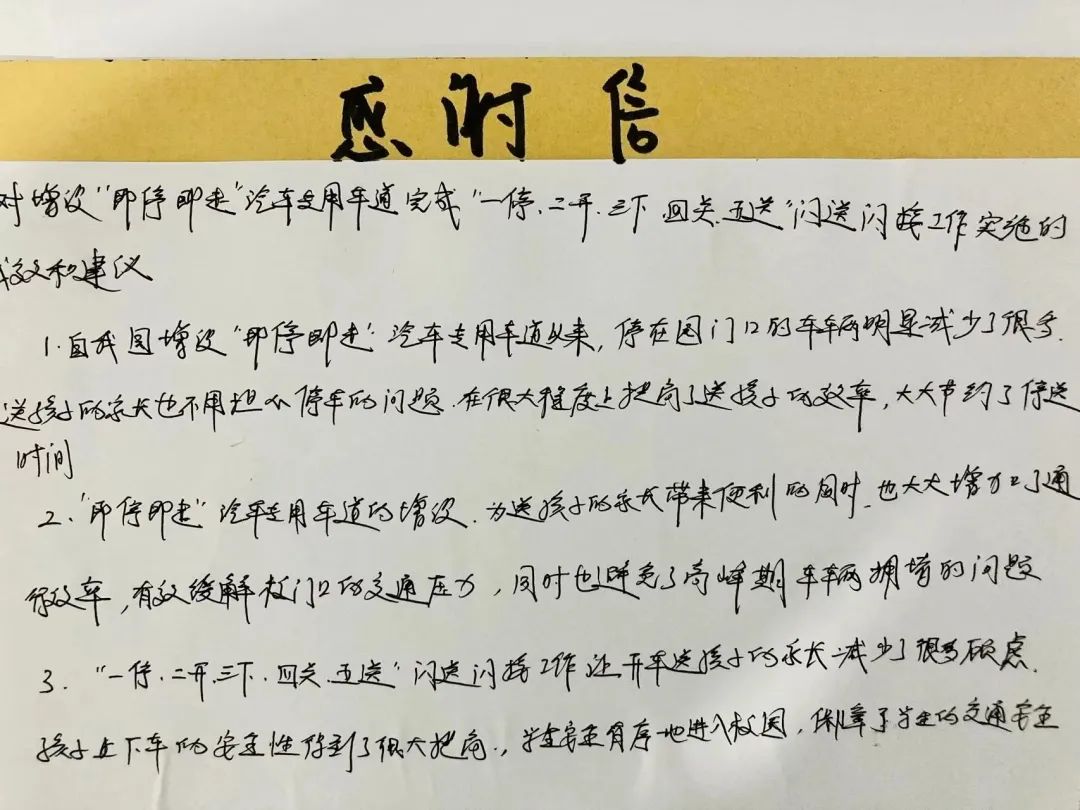 感谢信
对增设"即停即走"汽车专用车道完成"一停、二开、三下、四关、五送"闪送闪接工作实施的
成效和建议
1.自我园增设"即停即走"汽车专用车道以来,停在园门口的车辆明显减少了很多.
送孩子的家长也不用担心停车的问题.在很大程度上提高了送孩子的效率,大大节约了停送
时间
2、"即停即走"汽车专用车道的增设.为送孩子的家长带来便利的同时.也大大增加了通
行效率,有效缓解校门口的交通压力,同时也避免了高峰期车辆拥堵的问题
3."一停、二开、三下、四关、五送"闪送闪接工作让开车送孩子的家长减少了很多顾虑.
孩子上下车的安全性得到了很大提高.,学生安全有序地进入校园,保障了学生的交通安全